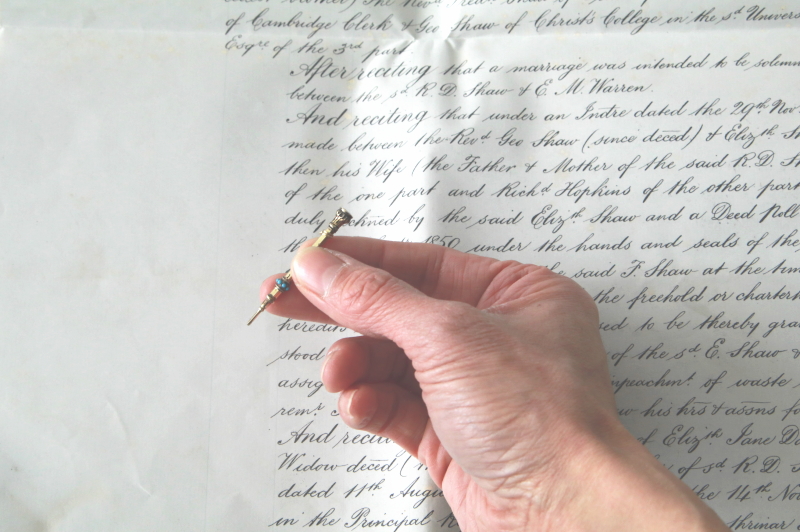 of Cambridge Clerk & Geo Shaw of Christ's College in the sd Univers
Esqre of the 3rd part.
After reciting that a marriage was intended to be solemn
between the sd R. D. Shaw & E. M. Warren.
And reciting that under an Indre dated the 29th Nov
made between the Revd Geo Shaw (since decd) & Elizth Sh
then his Wife (the Father & Mother of the said R. D. Sh
of the one part and Richd Hopkins of the other part
duly ackned by the said Elizth Shaw and a Deed Poll
th 1850 under the hands and seals of the
e said F. Shaw at the tim
the freehold or charter
heredits sed to be thereby gra
stood of the sd E. Shaw &
assig mpachmt of waste
remr w his hrs & assns fo
And reciti f Elizth Jane Da
Widow decd ( y of sd R. D. S
dated 11th Augu the 14th Nov
in the Principal thrinar